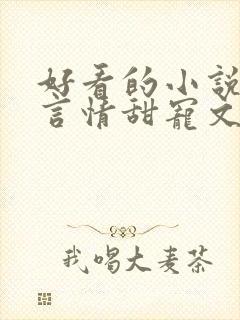 好看的小說
言情甜寵文
我喝大麦茶